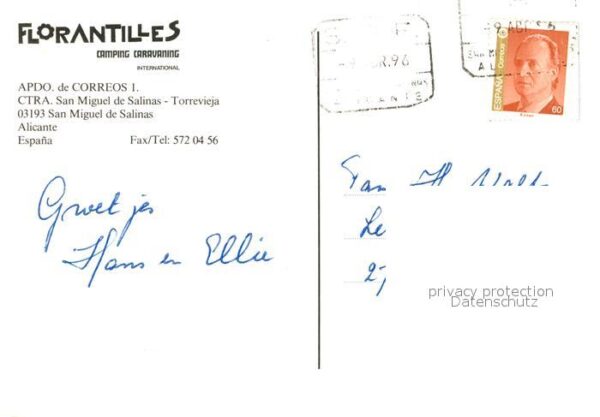 FLORANTILLES
CAMPING CARAVANING
INTERNATIONAL
APDO. de CORREOS 1.
CTRA. San Miguel de Salinas - Torrevieja
03193 San Miguel de Salinas
Alicante
España Fax/Tel: 572 04 56
Groetjes
Hans en Ellie
ESPAÑA Correos
60
Fam
privacy protection
Datenschutz